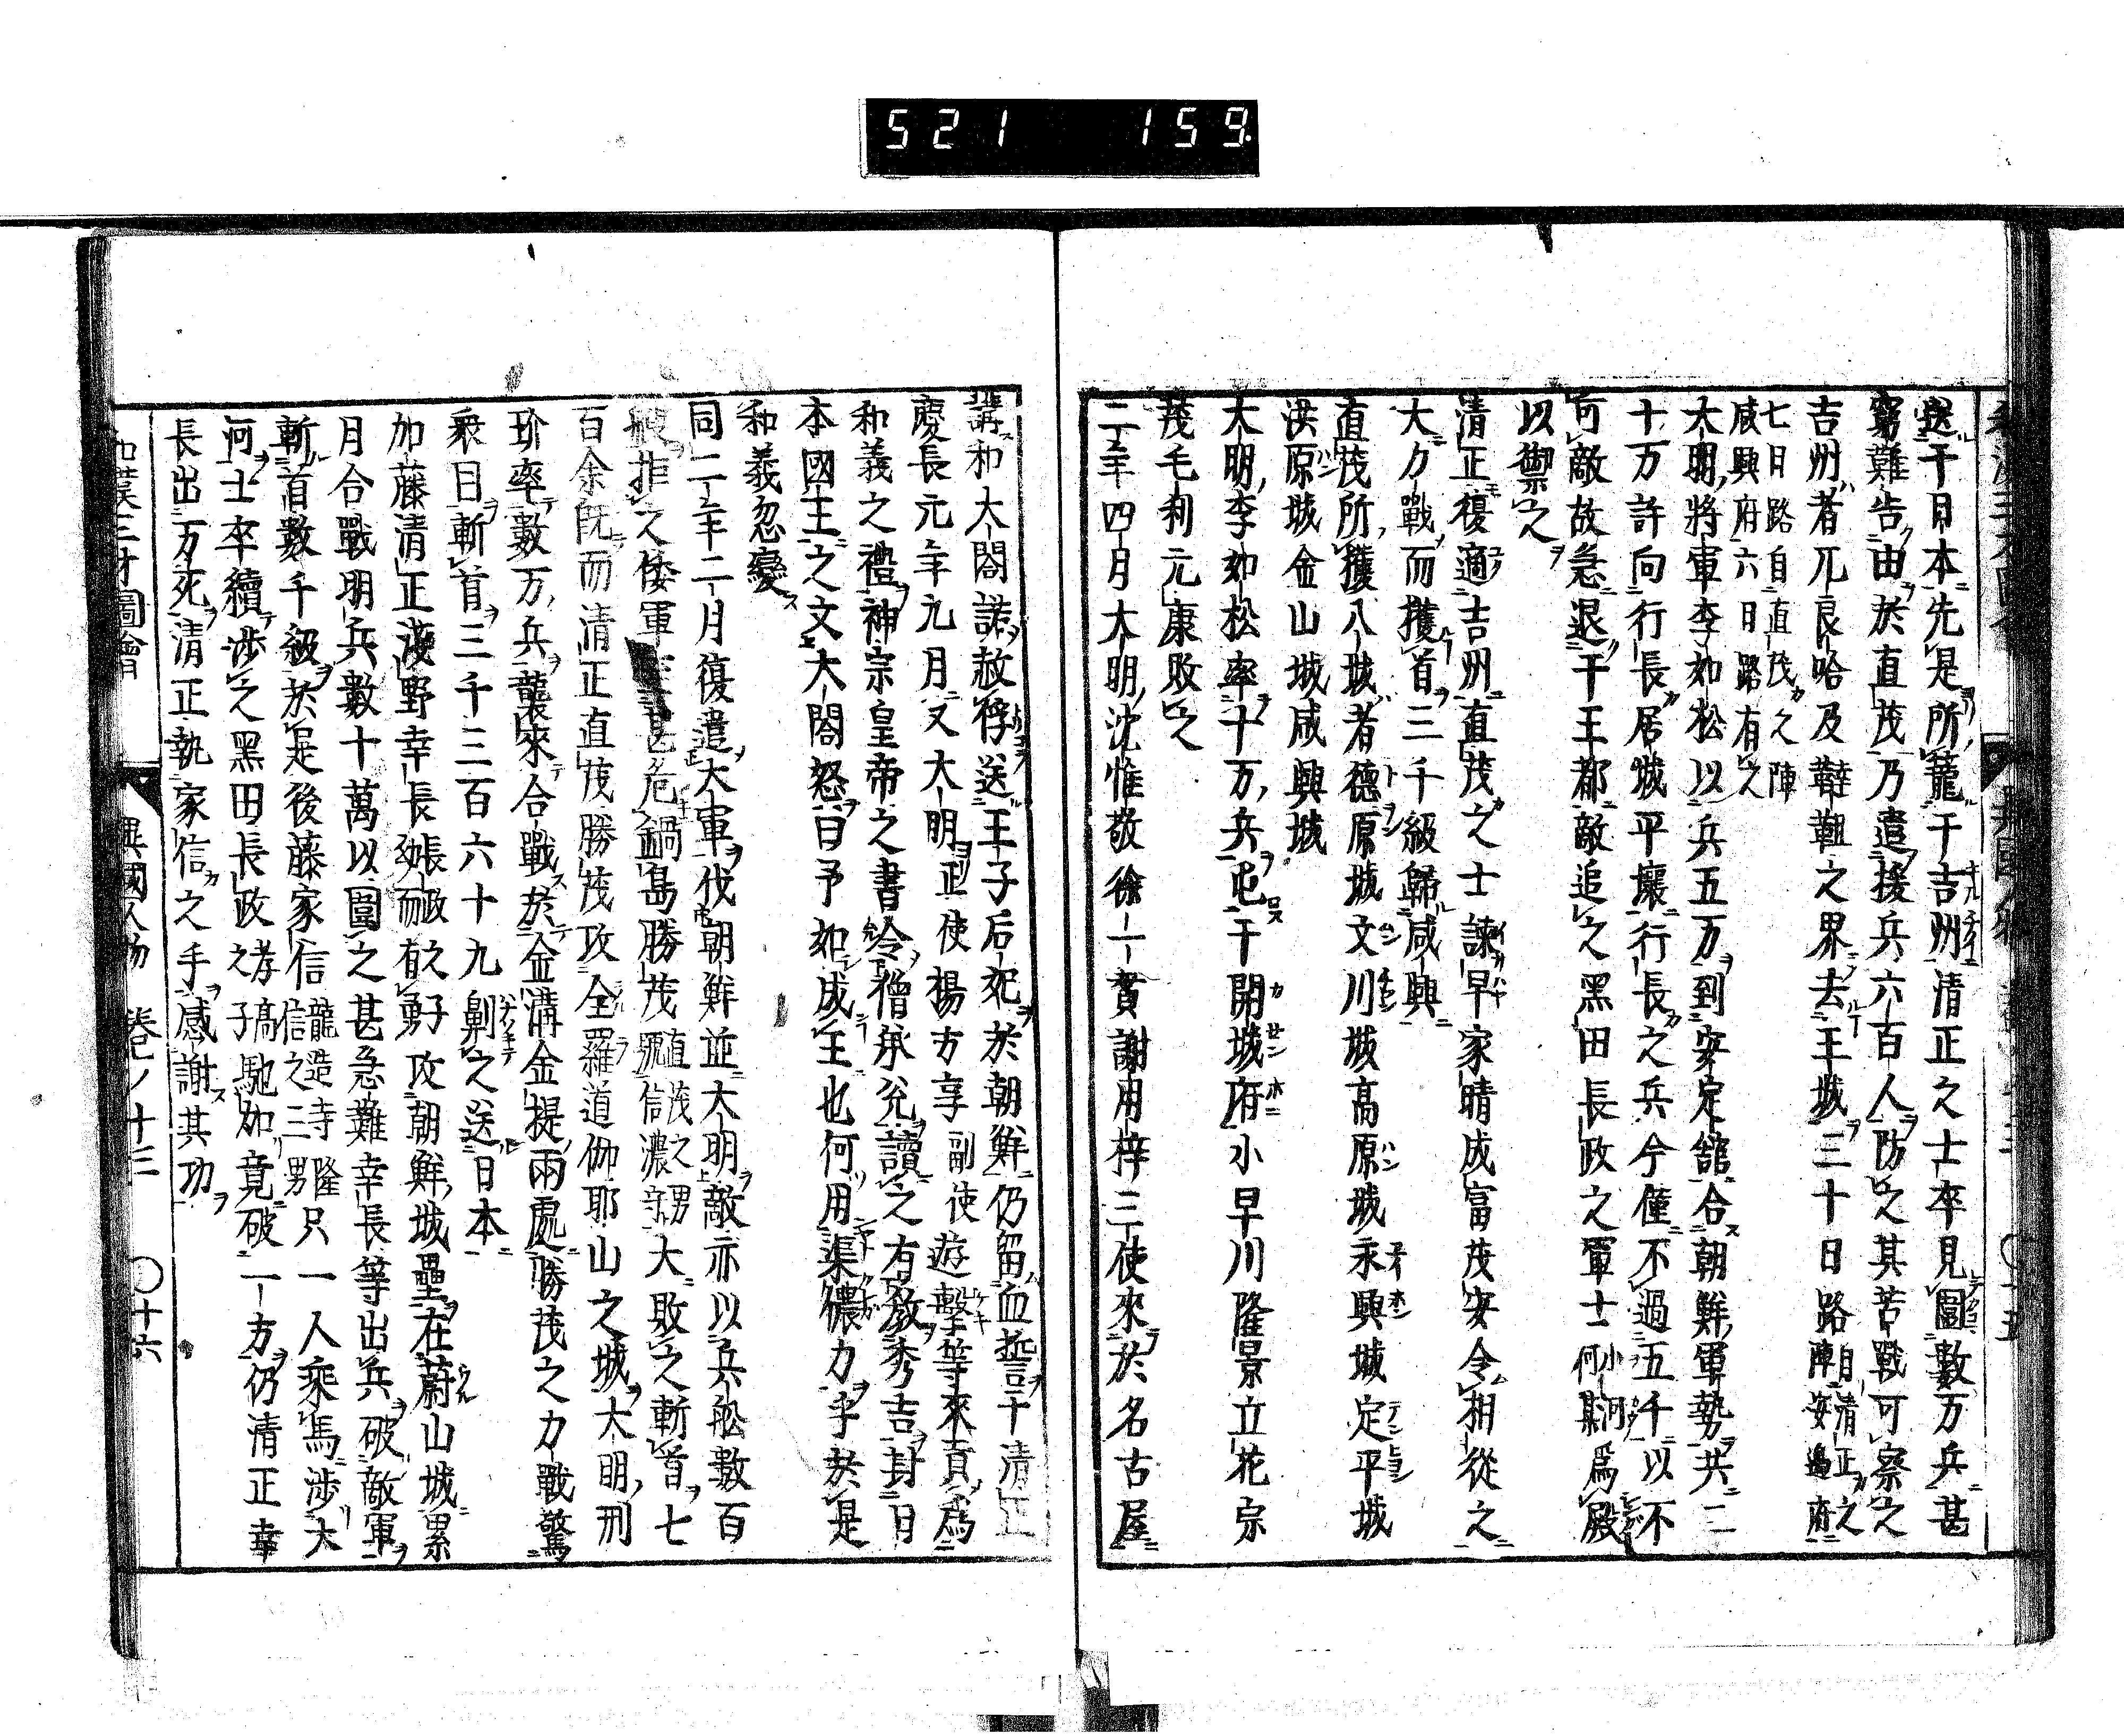 521 159
送于日本先是所籠于吉州清正之士卒見圍數万兵甚
窮難告由於直茂乃遣援兵六百人防之其苦戰可察之
吉州者兀良哈及韃靼之界去王城三十日路自清正之陣安邊府
七日路自直茂之陣咸興府六日路有之
大明將軍李如松以兵五万到安定館合朝鮮軍勢共二
十万許向行長居城平壤行長之兵今僅不過五千以不
可敵故急退于王都敵追之黑田長政之軍士小河何某爲殿
以禦之
清正復適吉州直茂之士諫早家晴成富茂安令相從之
大力戰而獲首三千級歸咸興
直茂所獲八城者德原城文川城高原城永興城定平城
洪原城金山城咸興城
大明李如松率十万兵屯于開城府小早川隆景立花宗
茂毛利元康敗之
二年四月大明沈惟敬徐一貫謝用梓三使來於名古屋
講和大閤諾赦俘送王子后妃於朝鮮仍留血誓于清正
慶長元年九月又大明正使楊方享副使遊擊等來貢爲
和義之禮神宗皇帝之書令僧承兌讀之有教秀吉封日
本國王之文大閤怒曰予如成王也何用渠儂力乎於是
和義忽變
同二年二月復遣大軍伐朝鮮並大明敵亦以兵船數百
艘拒之倭軍甚危鍋島勝茂直茂之男號信濃守大敗之斬首七
百余既而清正直茂勝茂攻全羅道伽耶山之城大明刑
玠率數万兵襲來合戰於金溝金提兩處勝茂之力戰驚
衆日斬首三千三百六十九劓之送日本
加藤清正淺野幸長長政之子幼而有勇攻朝鮮城壘在蔚山城累
月合戰明兵數十萬以圍之甚急難幸長等出兵破敵軍
斬首數千級於是後藤家信龍造寺隆信之三男只一人乘馬涉大
河士卒續涉之黑田長政孝高之子馳加竟破一方仍清正幸
長出万死清正執家信之手感謝其功
和漢三才圖會 異國人物 卷ノ十三 〇十六